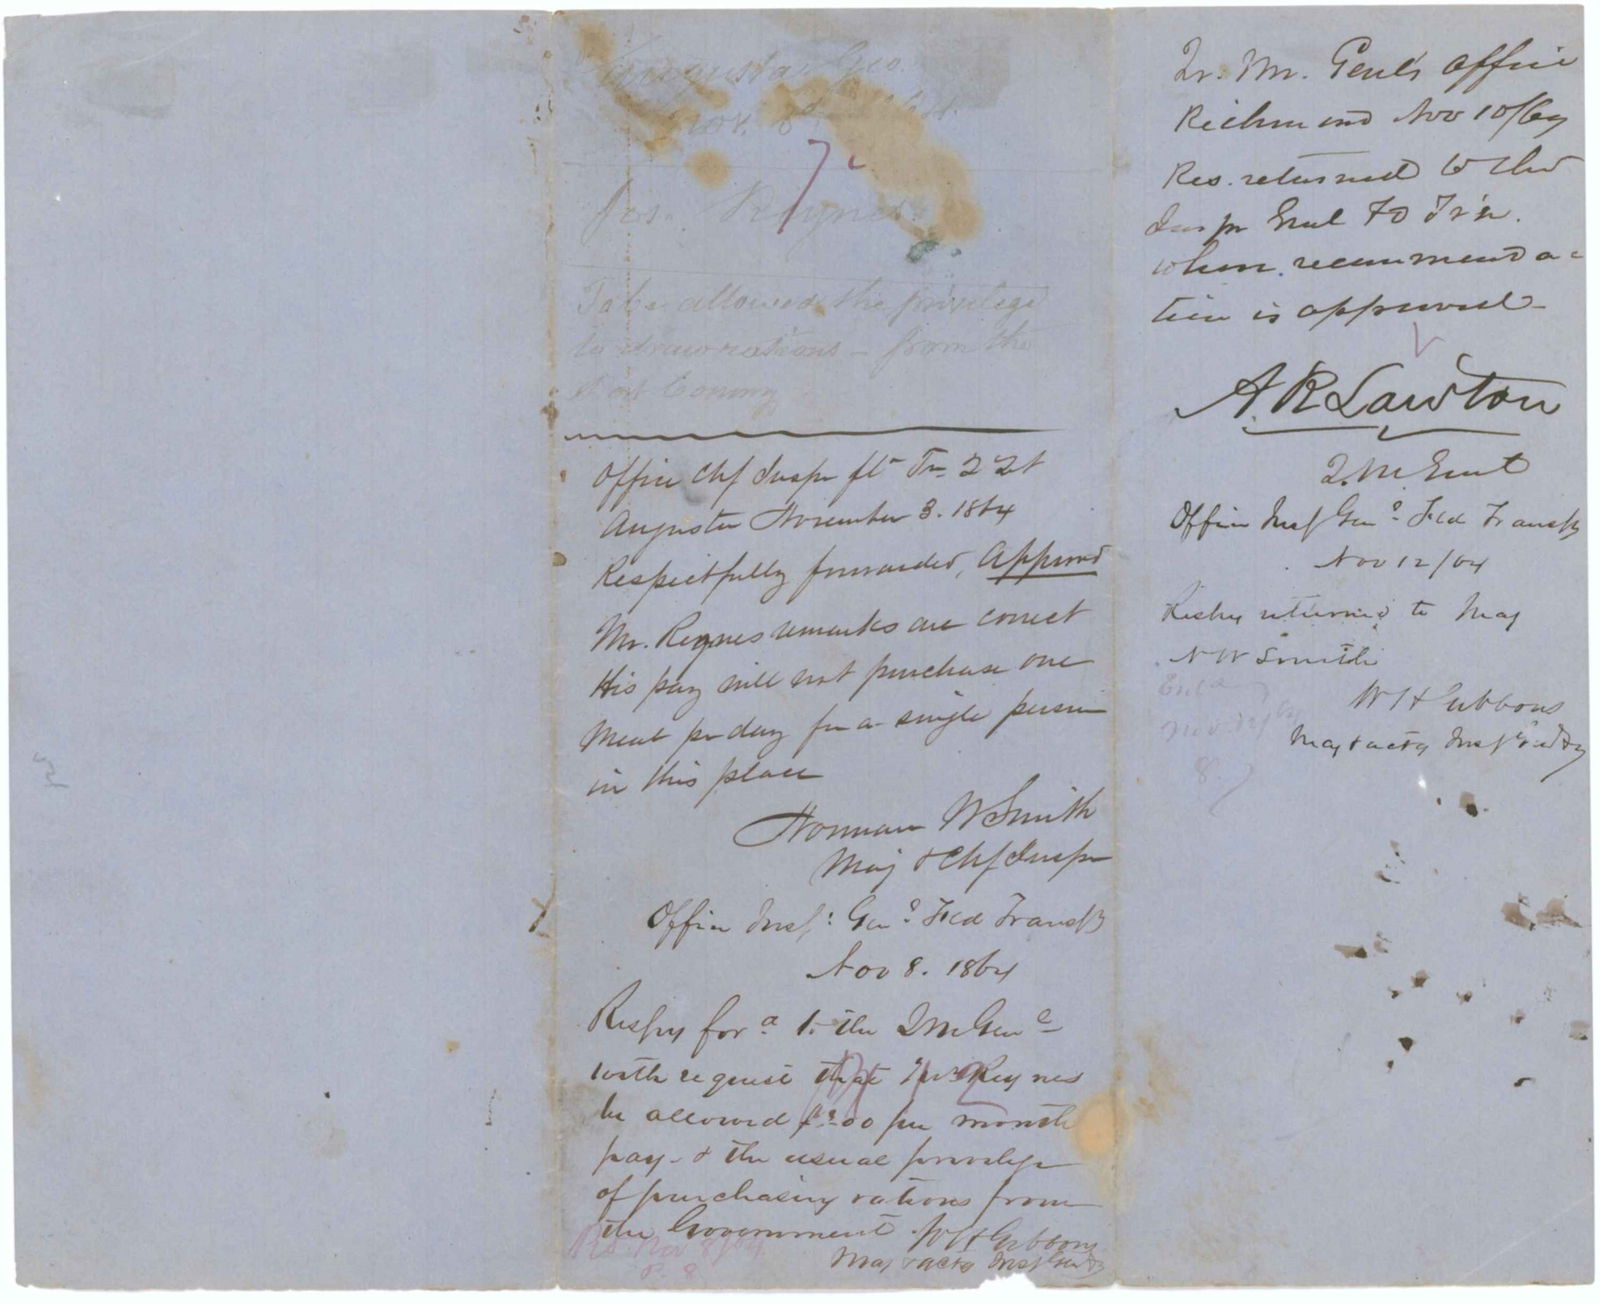 Augusta Geo.
Nov. 3d 1864.
Jos. Reynes
To be allowed the privilege
to draw rations - from the
Post Commy
Office Chf Inspr fd Tn 2 Dt
Augusta November 3. 1864
Respectfully forwarded, Approved
Mr. Reynes remarks are correct
His pay will not purchase one
meal pr day for a single person
in this place
Norman W Smith
Maj & Chf Inspr
Office Insp: Genl Fld Transp
Nov 8. 1864
Respy for.d to the QM Genl
with request that Mr Reynes
be allowed 00 per month
pay - & the usual privilege
of purchasing rations from
the Government W H Gibbons
Maj & actg Insp Gen
Rd. Nov 8/64
Qr. Mr. Genl's Office
Richmond Nov 10/64
Res. returned to the
Inspr Genl Fd Trn.
whose recommenda-
tion is approved -
A. R Lawton
Q. M. Genl
Office Insp Genl Fld Transp
Nov 12/64
Respy returned to Maj
N W Smith
W H Gibbons
Maj & actg Insp